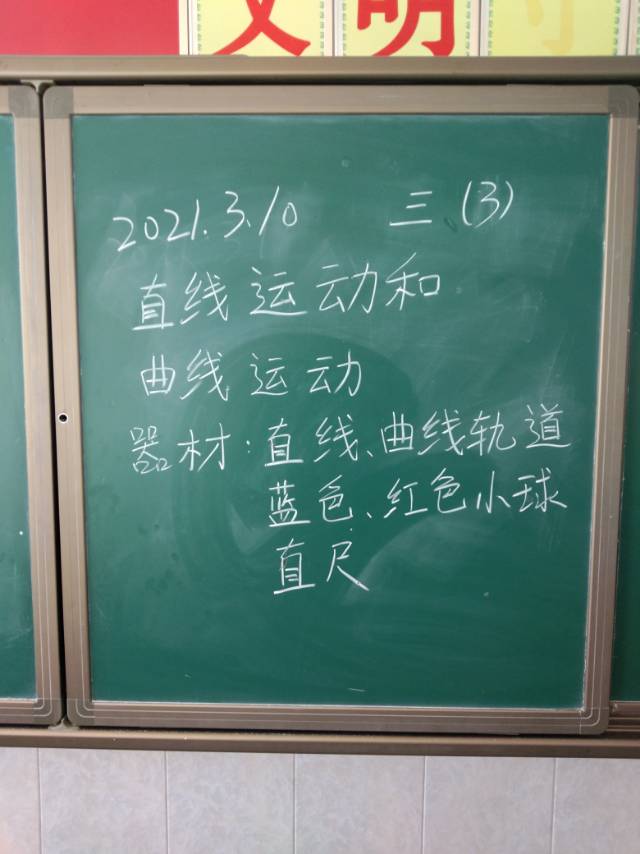 文明
2021.3.10 三(3)
直线运动和
曲线运动
器材:直线、曲线轨道
蓝色、红色小球
直尺